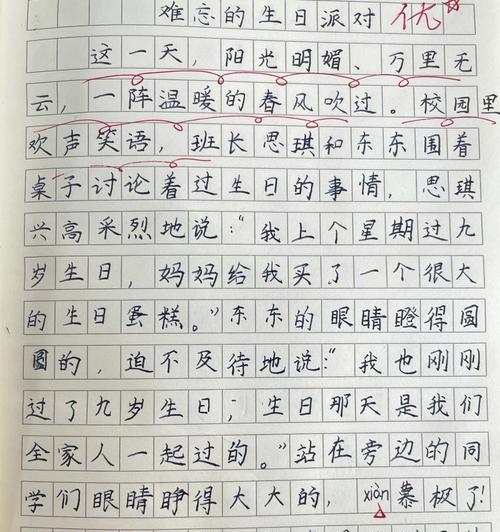 难忘的生日派对 优
这一天，阳光明媚、万里无
云，一阵温暖的春风吹过。校园里
欢声笑语，班长思琪和东东围着
桌子讨论着过生日的事情，思琪
兴高采烈地说：“我上个星期过九
岁生日，妈妈给我买了一个很大
的生日蛋糕。”东东的眼睛瞪得圆
圆的，迫不及待地说：“我也刚刚
过了九岁生日，生日那天是我们
全家人一起过的。”站在旁边的同
学们眼睛睁得大大的，xiàn慕极了!